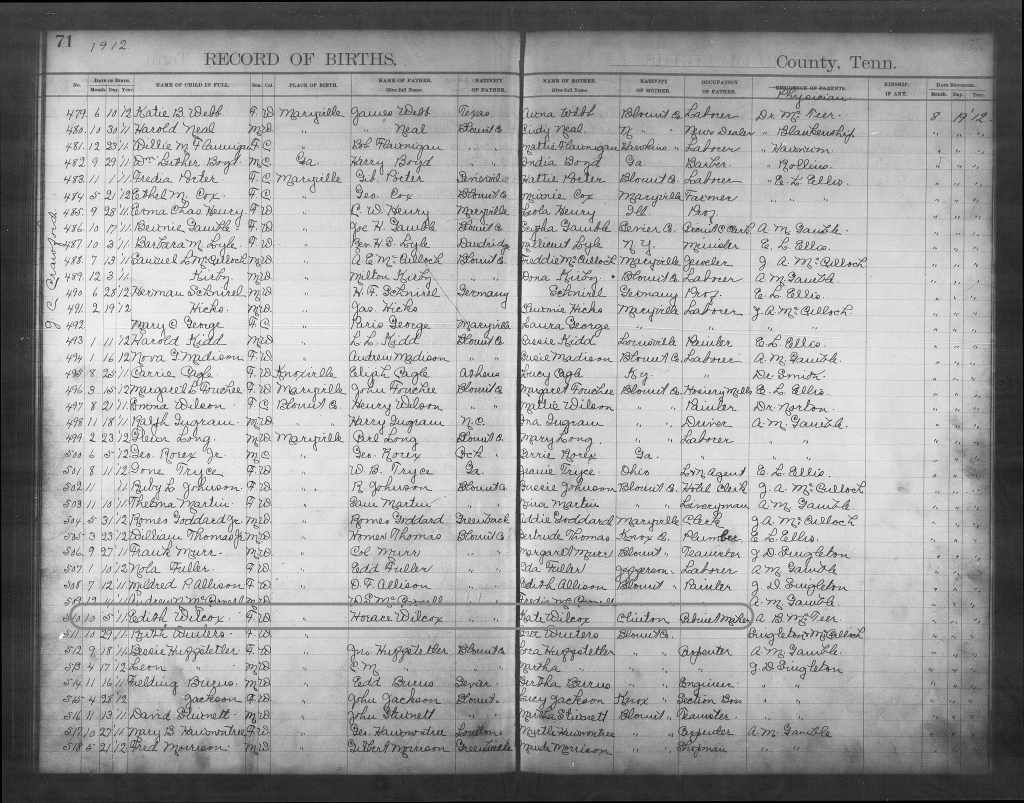 71 1912
RECORD OF BIRTHS. County, Tenn.
No. DATE OF BIRTH. Month Day Yr. NAME OF CHILD IN FULL. Sex Col. PLACE OF BIRTH. NAME OF FATHER. Give full Name. NATIVITY OF FATHER. NAME OF MOTHER. Give full Name. NATIVITY OF MOTHER. OCCUPATION OF FATHER. RESIDENCE OF PARENTS. Physician KINSHIP, IF ANY. DATE RETURNED. Month. Day. Year.
J C Crawford
479 6 10 12 Katie B. Webb F W Maryville James Webb Texas Webb Blount Co Laborer Dr Mc Teer 8 19 12
480 10 30 11 Harold Neal M W " " Neal Blount Co Cudy Neal " " News Dealer " Blankenship
481 12 23 11 Willie M. Flannigan F W " " Bob Flannigan " " Mattie Flannigan Hawkins " Laborer "
482 9 29 11 Wm Luther Boyd M C Ga Harry Boyd " " India Boyd Ga Barber " Rollins
483 11 1 11 Fredia Porter F C Maryville Gib Porter Hattie Porter Blount Co Laborer " E L Ellis
484 5 21 12 Ethel M. Cox F C " " Geo. Cox Blount Co Minnie Cox Maryville Farmer " " "
485 9 28 11 Erma Chas Henry F W " " C. W. Henry Maryville Leola Henry Ill Prof
486 10 17 11 Bernie Gamble F W " " Joe H. Gamble Blount Co Gamble Sevier Co Circuit C Clerk A M Gamble
487 10 3 11 Barbara M. Lyle F W " " Rev H S Lyle Dandridge Millicent Lyle N. Y. Minister E L Ellis
488 7 13 11 Samuel L McCulloch M W " " A E McCulloch Blount Co Freddie McCulloch Maryville Jeweler J A McCulloch
489 12 3 11 Kirby M W " " Milton Kirby " " Dona Kirby Blount Co Laborer A M Gamble
490 6 28 12 Herman Schnirel M W " " H. F. Schnirel Germany Schnirel Germany Prof. E. L. Ellis
491 2 19 12 Hicks M W " " Jas. Hicks " " Hicks Maryville Laborer J A McCulloch
492 Mary C George F C " " Paris George Maryville Laura George " " "
493 1 11 12 Harold Kidd M W " " L L Kidd Blount Co Susie Kidd Louisville Painter E L Ellis
494 1 16 12 Nova G. Madison F W " " Andrew Madison " " Susie Madison Blount Co Laborer A. M. Gamble
495 8 25 11 Carrie Cagle F W Knoxville Elijah Cagle Athens Lucy Cagle Ky. " Dr Smith
496 3 15 12 Margaret L Fouchee F W Maryville John Fouchee Blount Co Margaret Fouchee Blount Co Hosiery Mills E L Ellis
497 8 21 11 Emma Wilson F C Blount Co Henry Wilson " " Mattie Wilson " " Painter Dr Norton
498 11 18 11 Ralph Ingram M W " " Harry Ingram N. C. Ina Ingram " " Driver A. M. Gamble
499 2 23 12 Glenn Long M W Maryville Carl Long Blount Co Mary Long " " Laborer " "
500 6 5 12 Geo. Rorex Jr. M W " " Geo. Rorex Rorex Ga. "
501 8 11 12 Tryce F W " " W. B. Tryce Ga. Tryce Ohio L+N Agent E. L. Ellis
502 11 11 Ruby L Johnson F W " " R Johnson Blount Co Gussie Johnson Blount Co Hotel Clerk J. A. McCulloch
503 11 10 11 Thelma Martin F W " " Sam Martin " " Martin " " Liveryman A M Gamble
504 5 3 12 Romes Goddard Jr M W " " Romes Goddard Greenback Addie Goddard Maryville Clerk J A McCulloch
505 3 23 12 William Thomas Jr M W " " Homer Thomas Blount Co Gertrude Thomas Knox Co Plumber E. L. Ellis
506 9 27 11 Frank Murr M W " " Col Murr " " Margaret Murr Blount " Teamster J D Singleton
507 1 10 12 Nola Fuller F W " " Edd Fuller " " Eda Fuller Jefferson Laborer A M Gamble
508 7 12 11 Mildred P. Allison F W " " D. F. Allison " " Edith Allison Blount " Painter J D Singleton
509 12 11 Andrew N McConnell M W " " D L McConnell Fredia McConnell A M Gamble
510 10 5 11 Edith Wilcox F W " " Horace Wilcox " " Kate Wilcox Clinton Cabinet Maker A B McTeer
511 10 29 11 Ruth Winters F W " " " " Winters Blount Co. Singleton + McCulloch
512 9 18 11 Bessie Huffstetler F W " " Jno Huffstetler Blount Co Cora Huffstetler " " Carpenter A M Gamble
513 4 17 12 Leon " M W " " C M " " " Martha " " " " J D Singleton
514 11 16 11 Fielding Burns M W " " Edd Burns Sevier Bertha Burns " " Engineer " "
515 4 28 12 Jackson F W " " John Jackson Blount Lucy Jackson Knox Section Boss " "
516 11 13 11 David Stinnett M W " " John Stinnett " " Martha Stinnett Blount " Teamster " "
517 10 27 11 Mary B Hawntree F W " " Geo. Hawntree Loudon Myrtle Hawntree " " Carpenter A. M. Gamble
518 5 21 12 Fred Morrison M W " " Gilbert Morrison Greenville Maude Morrison " " " "